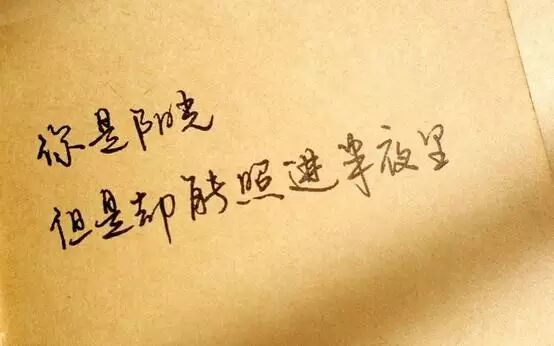 你是阳光
但是却能照进半夜里